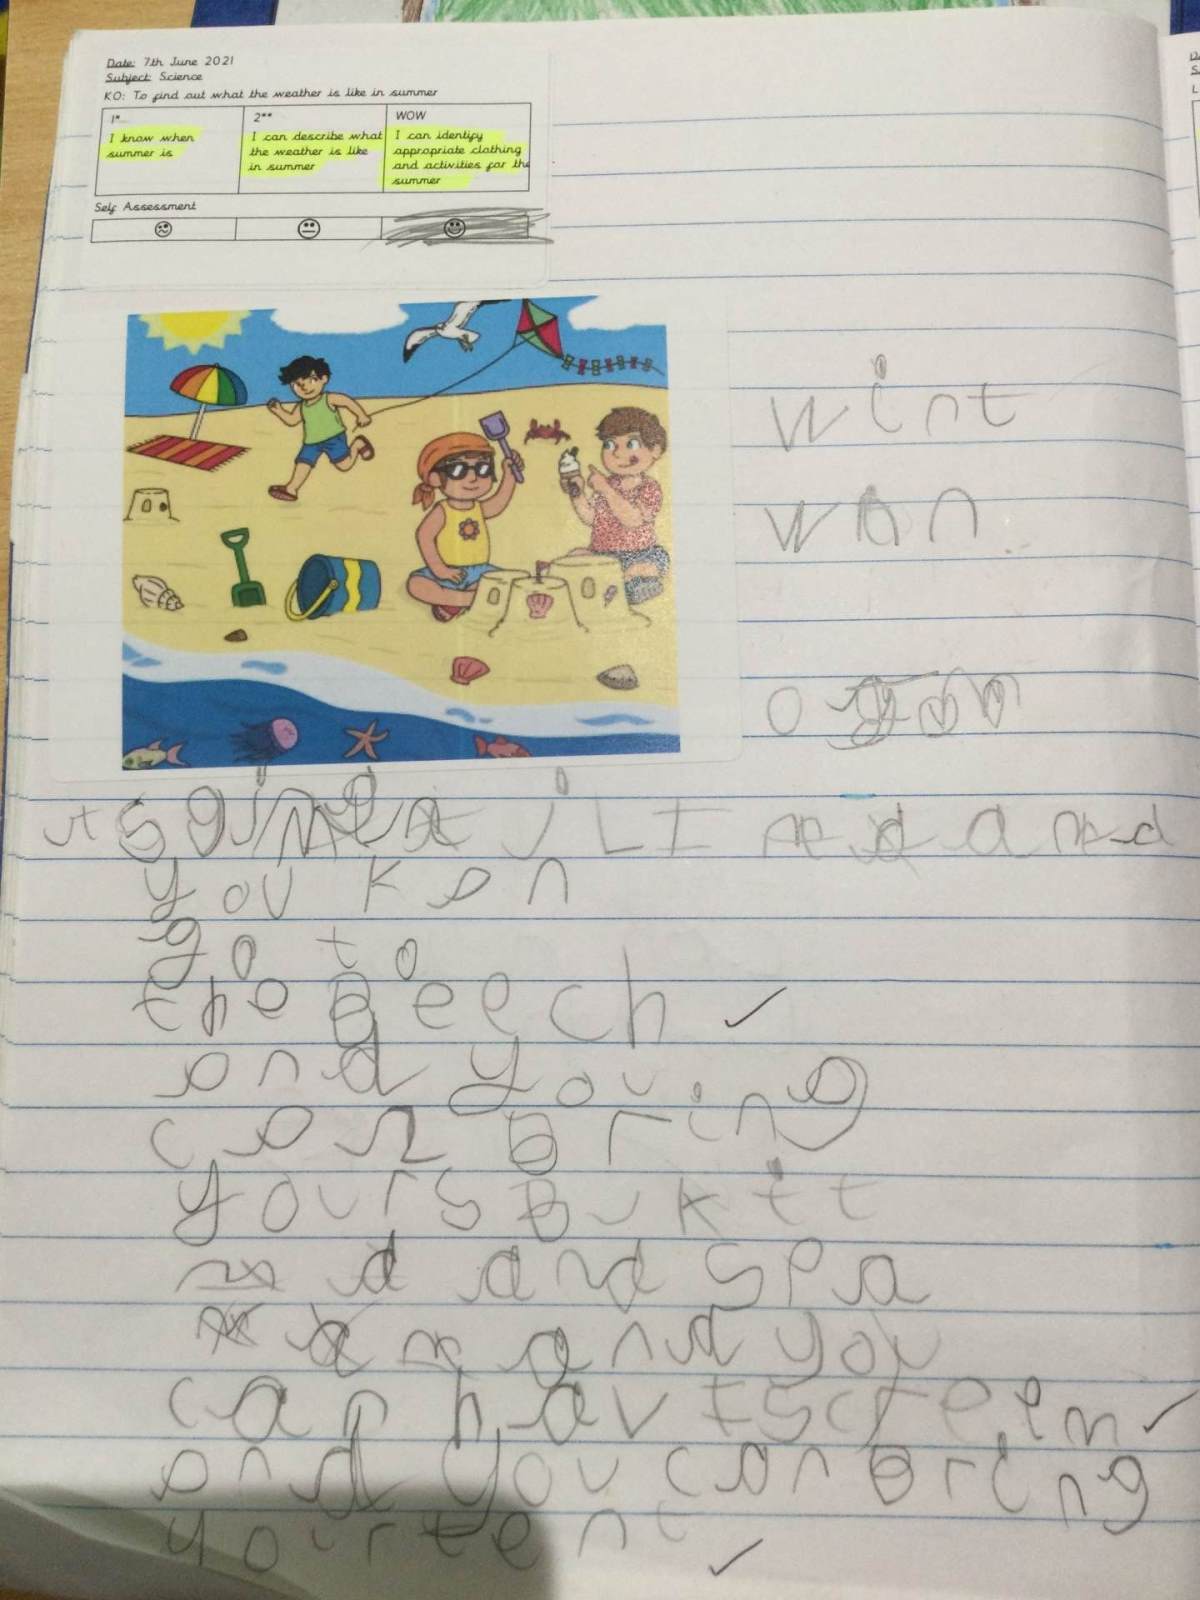 Date: 7th June 2021
Subject: Science
KO: To find out what the weather is like in summer
1* 2** WOW
I know when summer is
I can describe what the weather is like in summer
I can identify appropriate clothing and activities for the summer
Self Assessment
wint
o
and
you kan
go to
the Beech
and you
can Bring
yours Bukit
and spa
and you
can hav iscreem
and you can Bring
your tent